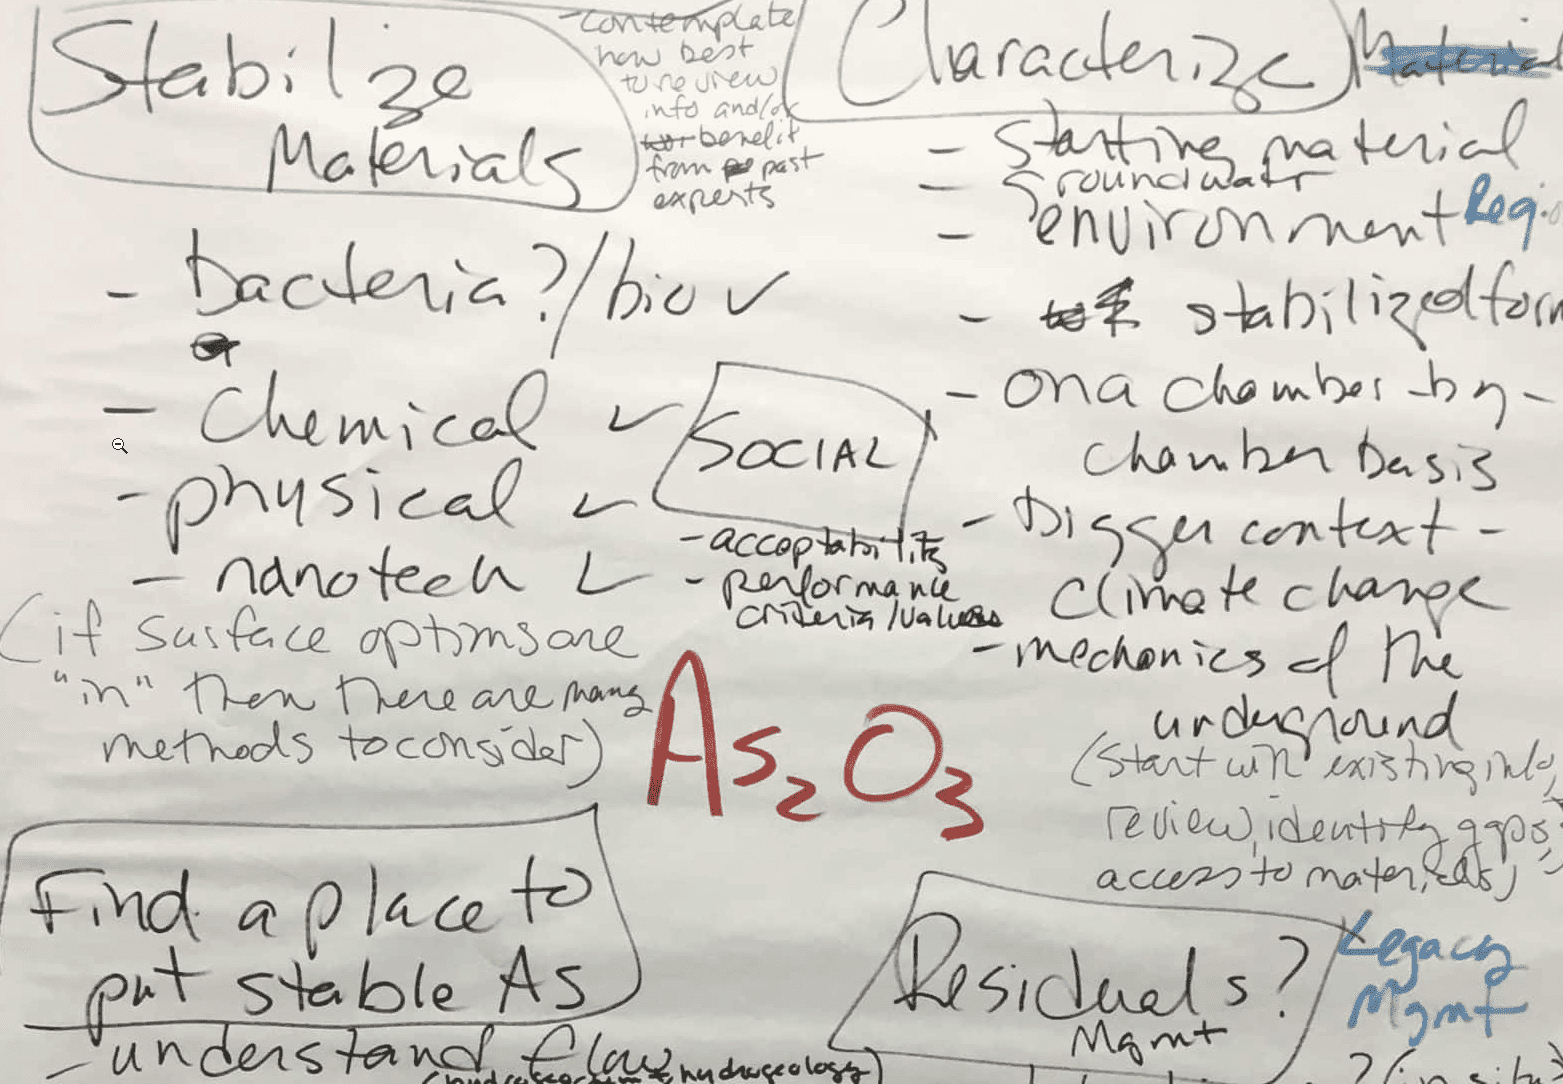 Stabilize
Materials
- contemplate
how best
to review
info and/or
benefit
from past
experts
- bacteria?/bio ✓
- Chemical ✓
- physical ✓
- nanotech ✓
(if surface options are
"in" then there are many
methods to consider)
SOCIAL
- acceptability
- performance
criteria/values
Characterize Material
- Starting material
- Groundwatr
- environment Reg.
- stabilized form
- on a chamber-by-
chamber basis
- Bigger context -
climate change
- mechanics of the
underground
(start with existing info,
review, identify gaps,
access to materials)
As2O3
Find a place to
put stable As
- understand flow
hydrogeology)
Residuals?
Mgmt
Legacy
Mgmt
? (in situ